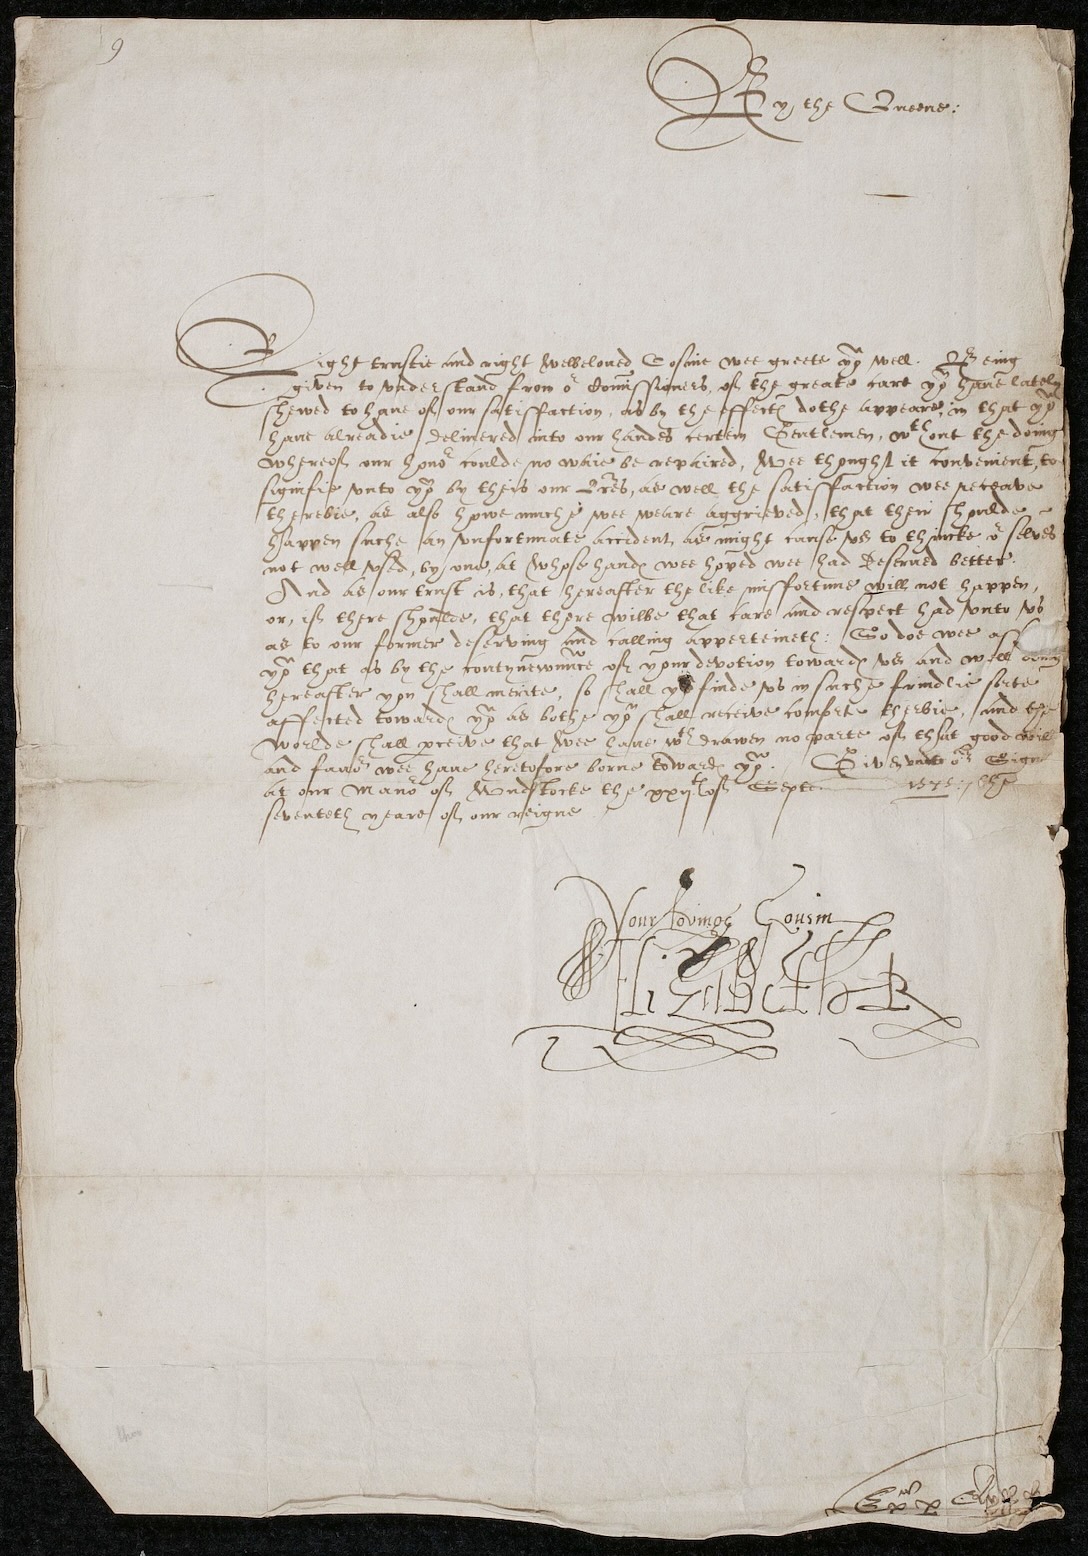 9
By the Queene:
Right trustie and right welbeloved Cosine wee greete yo͞u well. Being
given to understand from oʳ Comissioners, of the greate care yo͞u have lately
shewed to have of our satisfaction, as by the effect dothe appeare, in that yo͞u
have alreadie delivered into our handes certein Gentlemen, wᵗʰout the doing
whereof our honoʳ coulde no waie be repaired, Wee thought it convenient, to
signifie unto yo͞u by theis our Lr͞es, as well the satisfaction wee receave
therebie, as also howe muche wee weare aggrieved, that their shoulde
happen suche an unfortunate accident, as might cause us to thincke oʳ selves
not well used, by one, at whose hand wee hoped wee had deserved better.
And as our trust is, that hereafter the like missfortune will not happen,
or, if there shoulde, that there wilbe that care and respect had unto us
as to our former deserving and calling apperteineth: So doe wee
yo͞u that as by the contynewnce of your devotion toward us and well doing
hereafter you shall merite, so shall yo͞u finde us in suche frindlie sorte
affected toward yo͞u as bothe yo͞u shall receive comforte therbie, and the
worlde shall perceive that wee have wᵗʰdrawen no parte of that good will
and favoʳ wee have heretofore borne toward yo͞u. Given undr oʳ Signet
at our Manoʳ of Wodstocke the xxijᵗʰ of Septe. 1575: The
seventeth yeare of our reigne
Your loving Cousin
Elizabeth R